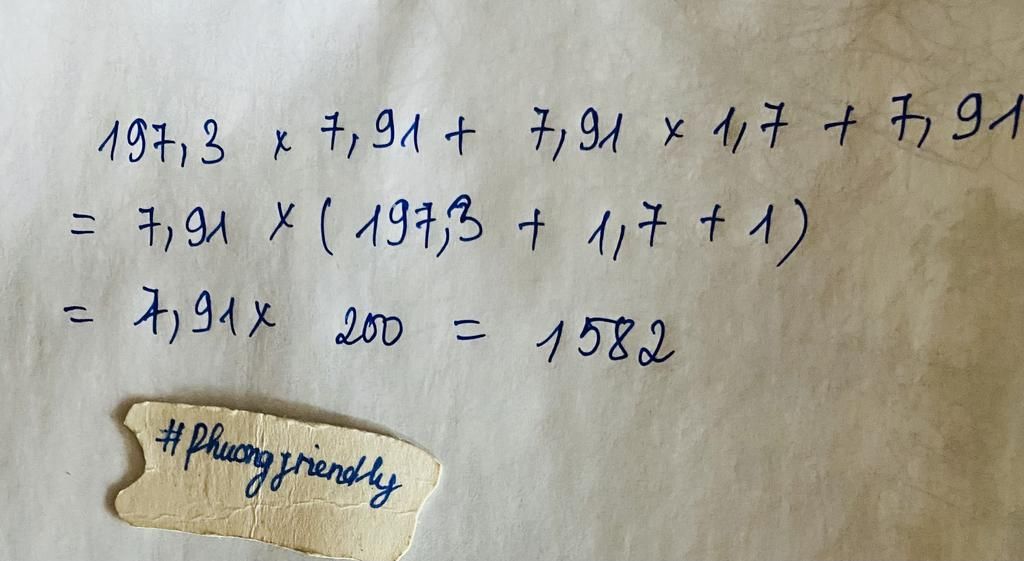 197,3 x 7,91 + 7,91 x 1,7 + 7,91
= 7,91 x ( 197,3 + 1,7 + 1 )
= 7,91 x 200 = 1582
#Phuongfriendly